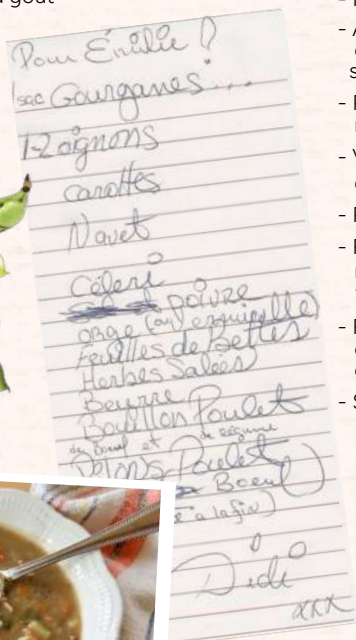 goût
Pour Émilie!
1 sac Gourganes...
1-2 oignons
carottes
Navet
Céleri
poivre
orge (ou vermicelle)
Feuilles de bettes
Herbes Salées
Beurre
Bouillon Poulet
de boeuf et de légume
Poulet
Boeuf)
à la fin)
Didi
xxx